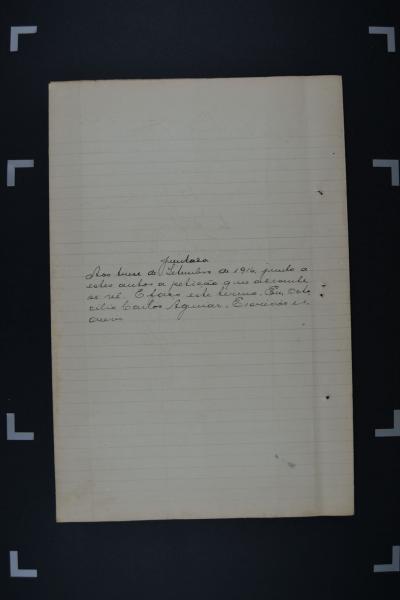 Juntada
Aos treze de Setembro de 1916, junto a
estes autos a petição que adeante
se vê. E faço este termo. Eu, Octa
cilio Carlos Aguiar, Escrivão es-
crevi